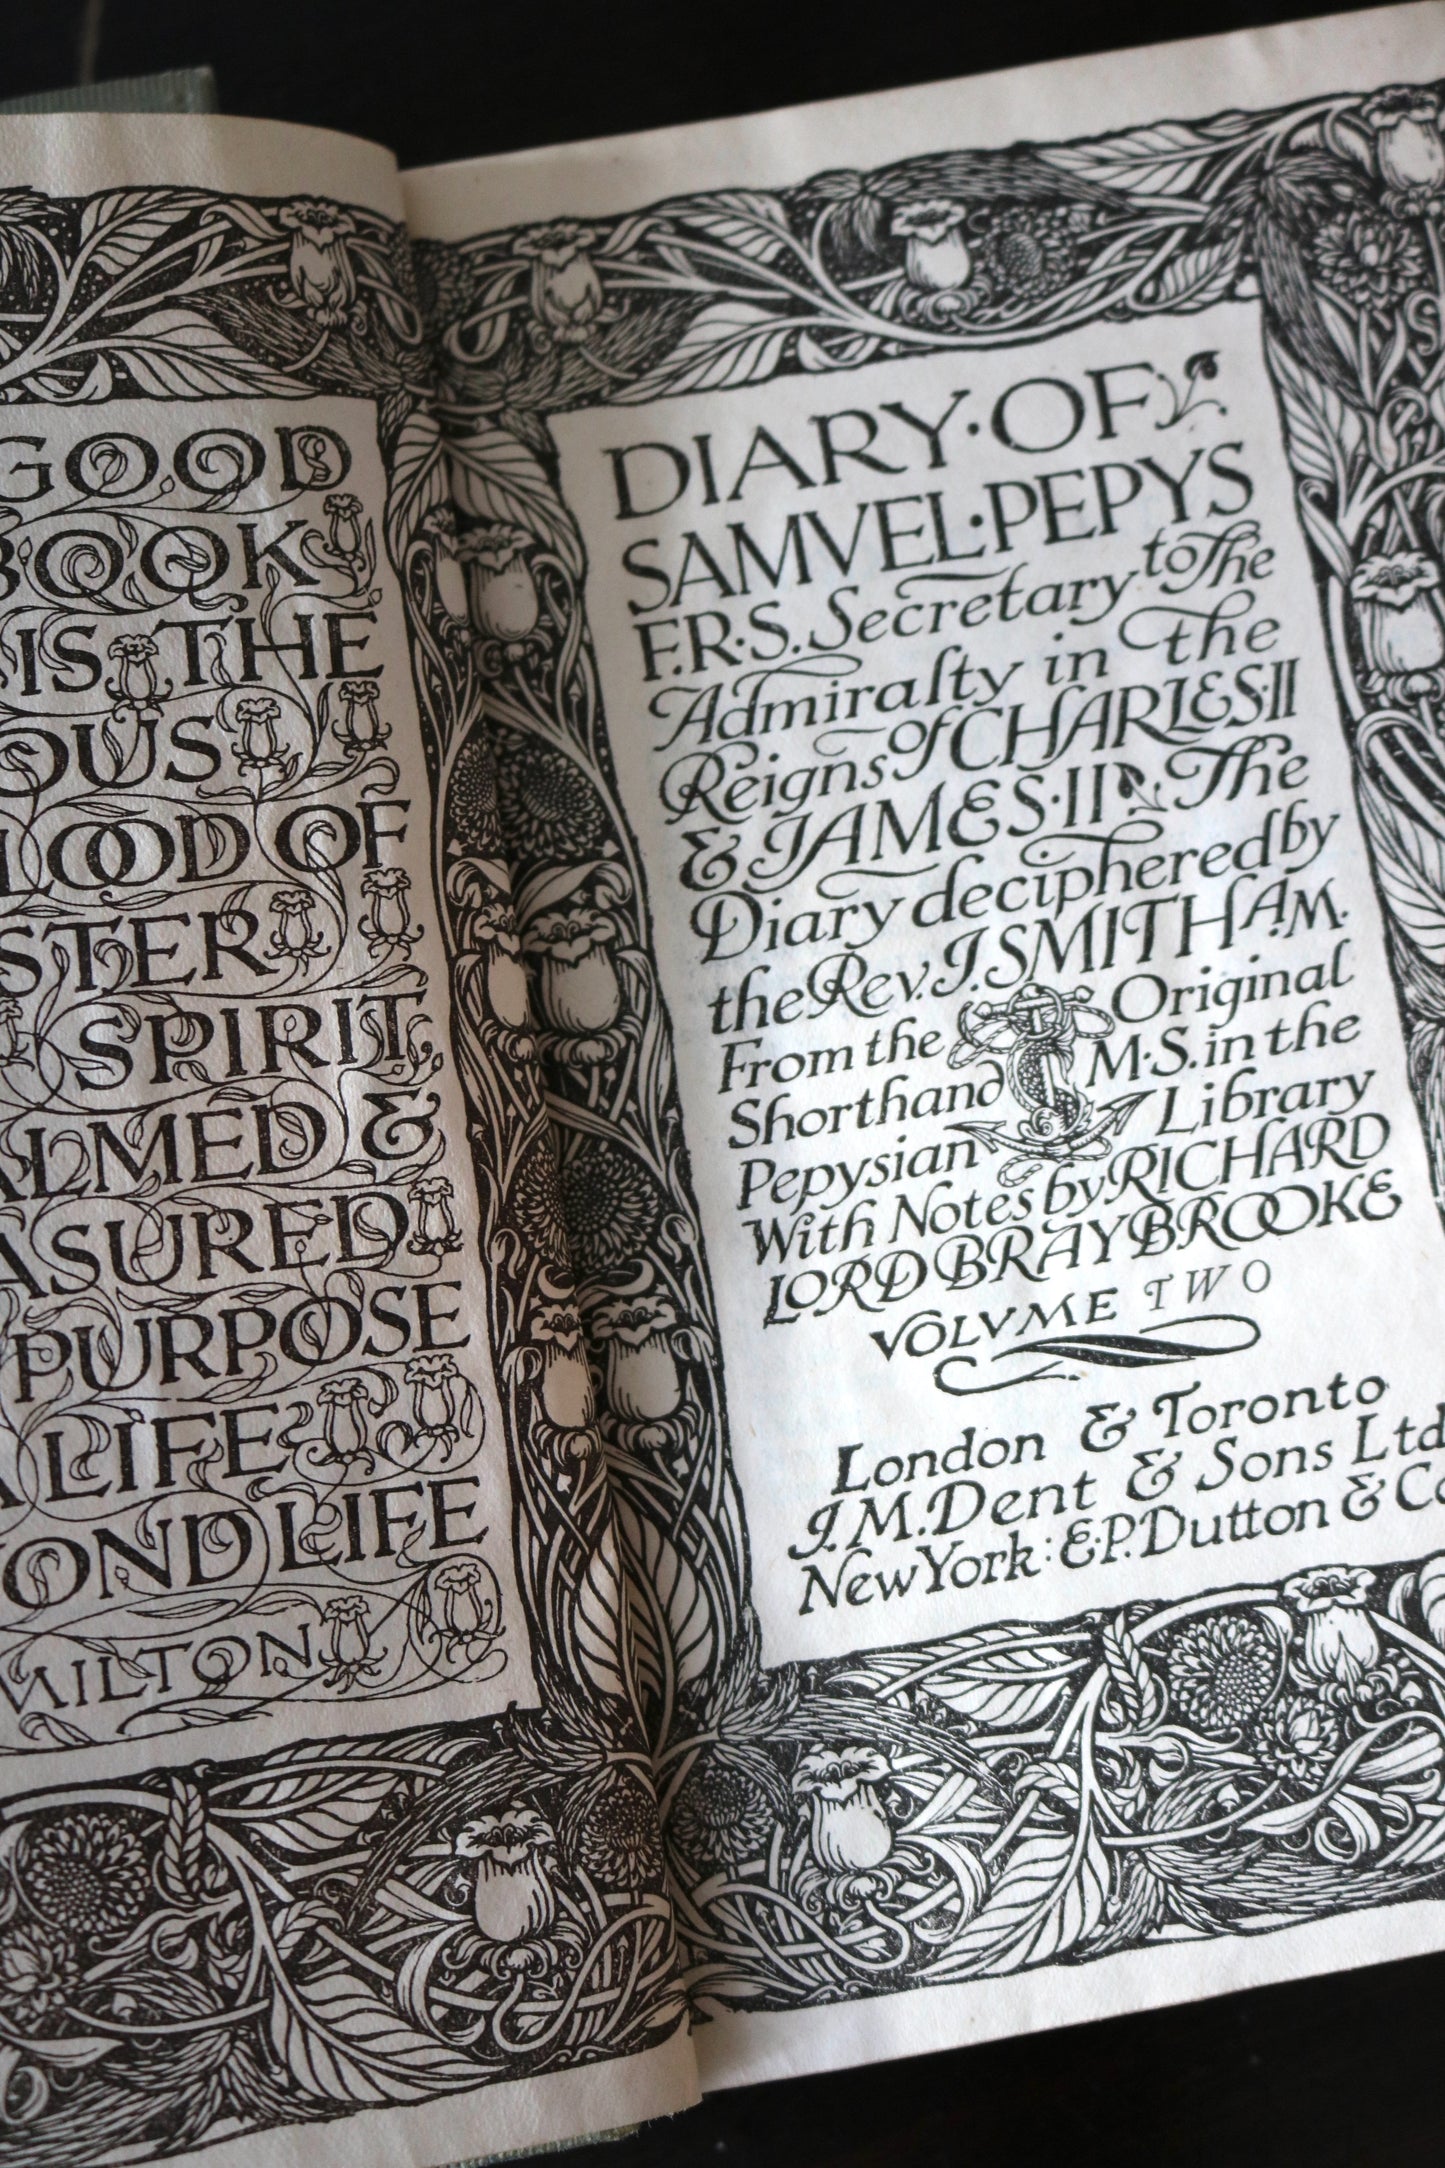 GOOD
BOOK
IS THE
OF
SPIRIT,
&
PURPOSE
LIFE
LIFE
MILTON
DIARY·OF
SAMVEL·PEPYS
F.R.S. Secretary to The
Admiralty in the
Reigns of CHARLES·II
& JAMES·II The
Diary deciphered by
the Rev. J. SMITH A.M.
From the Original
Shorthand M·S. in the
Pepysian Library
With Notes by RICHARD
LORD BRAYBROOKE
VOLVME TWO
London & Toronto
J.M. Dent & Sons Ltd
New York: E·P. Dutton & Co